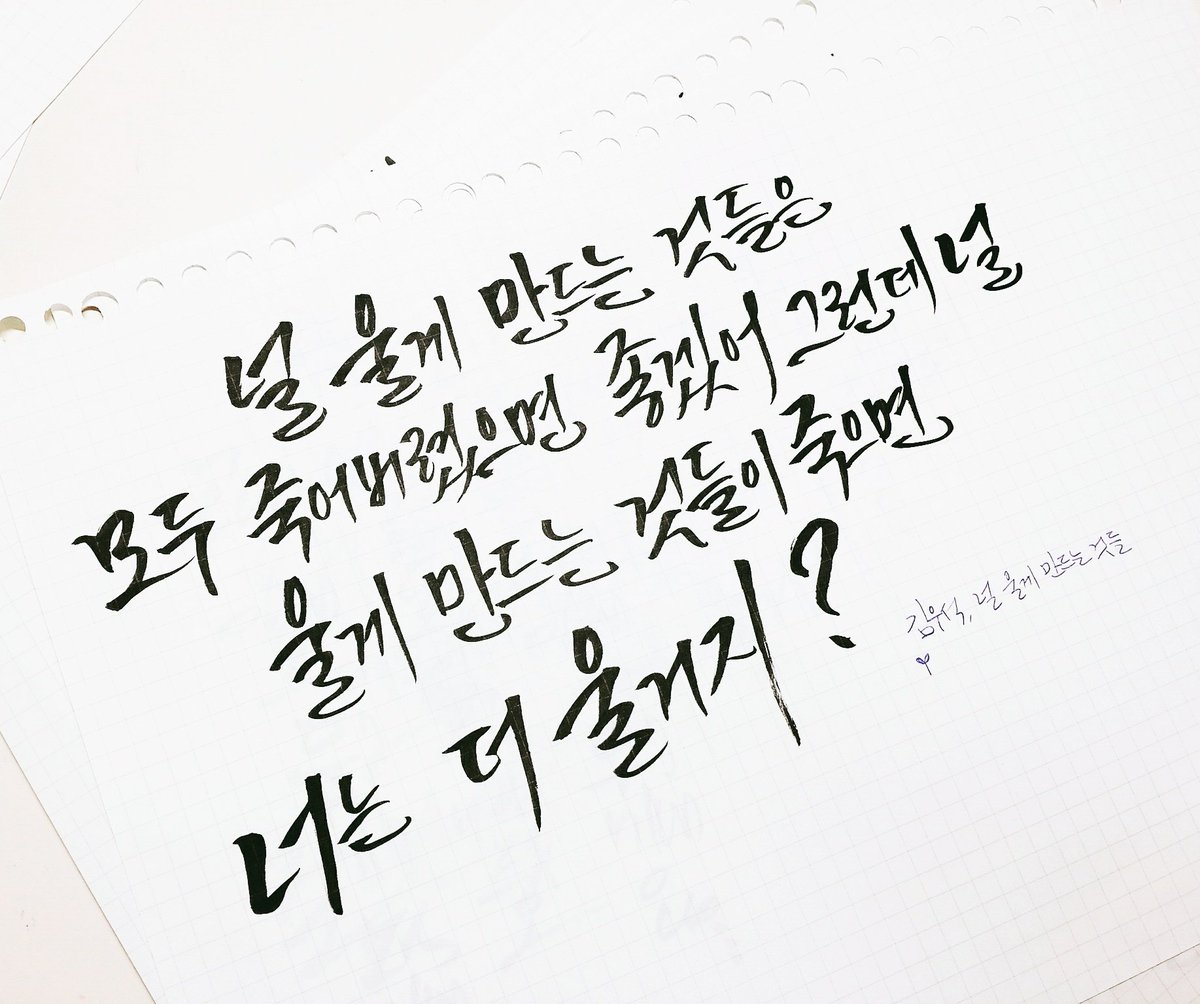 널 울게 만드는 것들은
모두 죽어버렸으면 좋겠어 그런데 널
울게 만드는 것들이 죽으면
너는 더 울거지?
김우석, 널 울게 만드는 것들